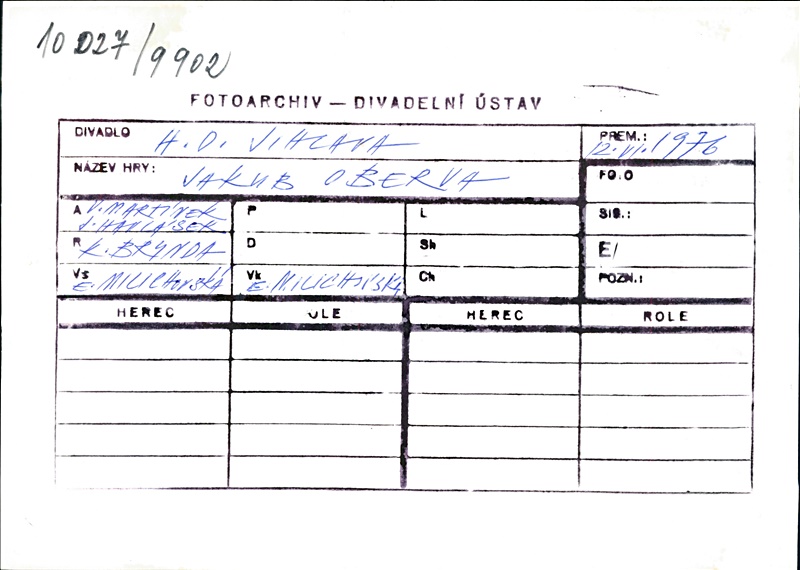 10 027/9902
FOTOARCHIV — DIVADELNÍ ÚSTAV
DIVADLO H.D. JIHLAVA
PREM.: 12.VI.1976
NÁZEV HRY: JAKUB OBERVA
FO.O
A V. MARTÍNEK
J. HAVLÁSEK
P
L
SIG.:
R K. BRYNDA
D
Sh
E/
Vs E. MILICHOVSKÁ
Vk E. MILICHOVSKÁ
Ch
POZN.:
HEREC
OLE
HEREC
ROLE